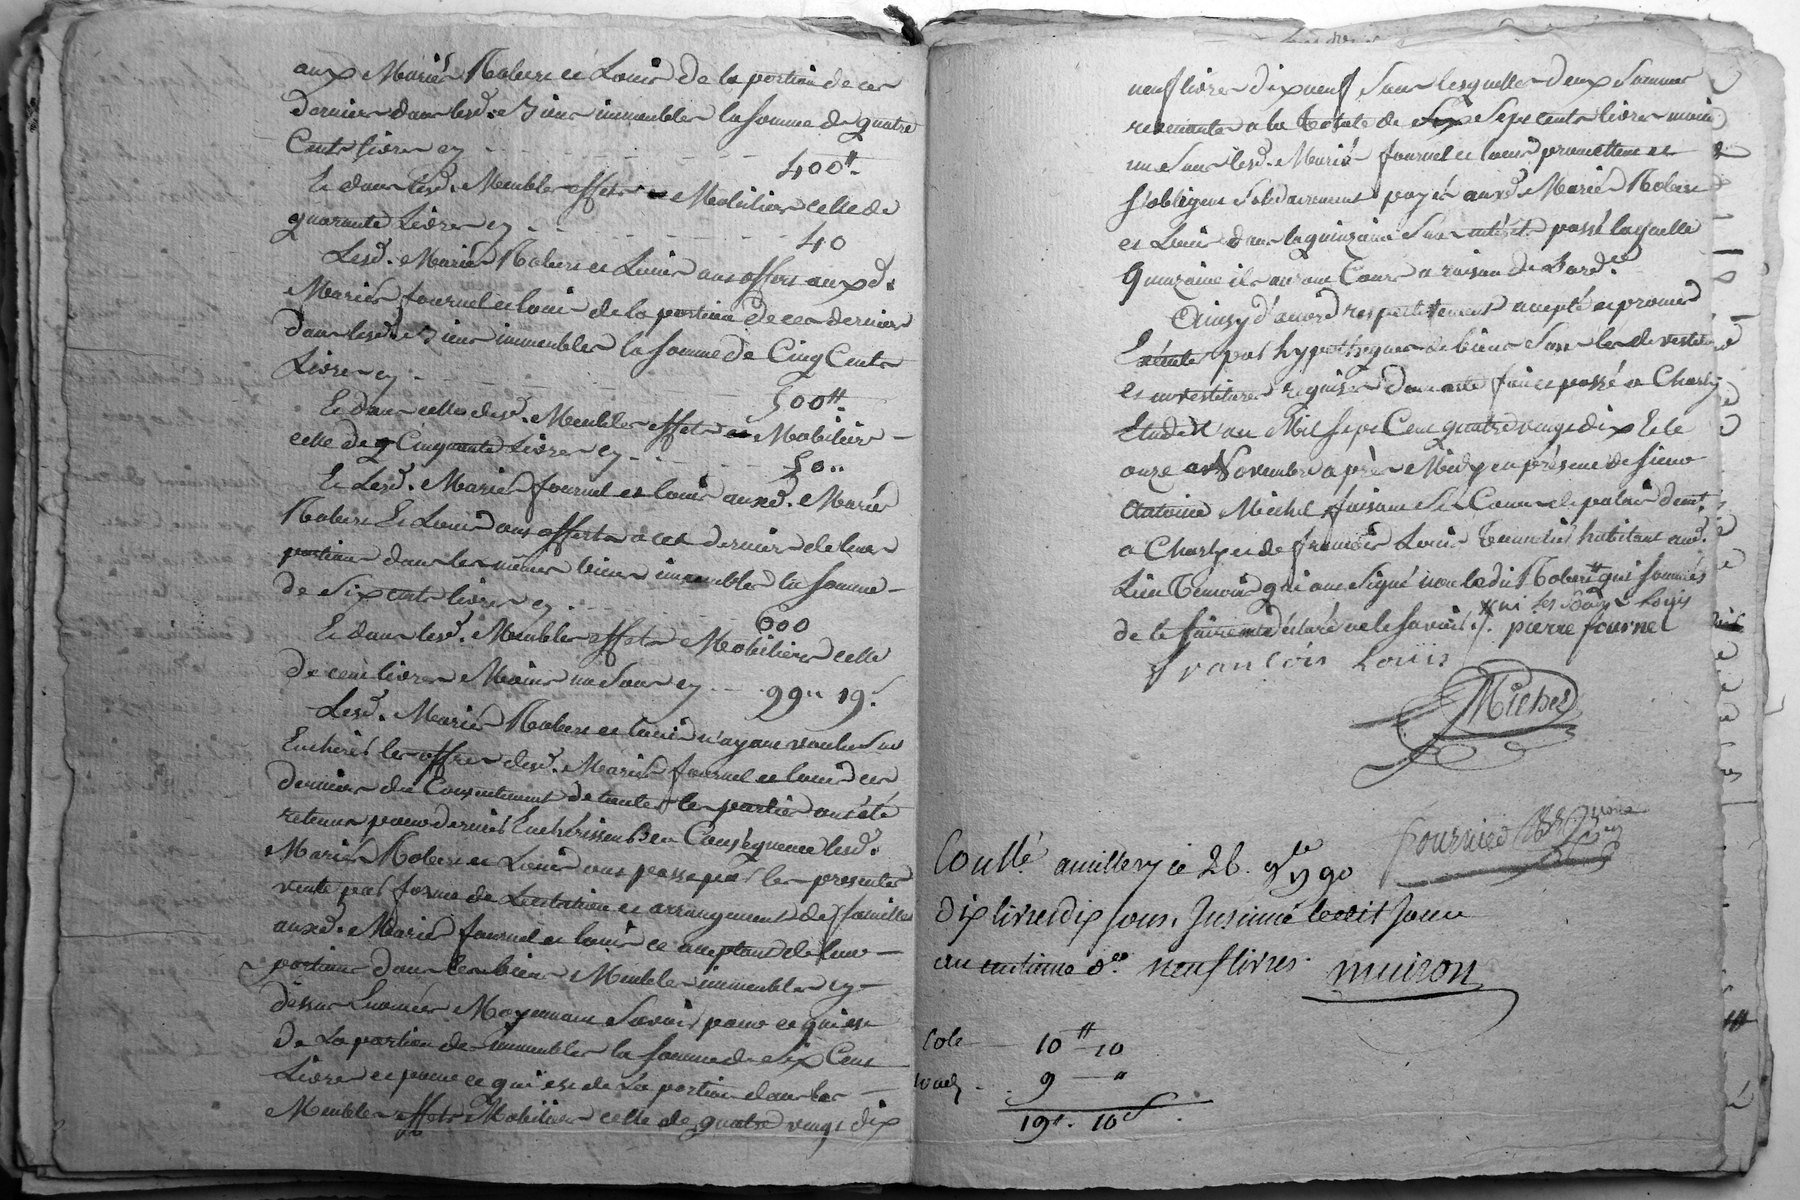 aux Mariés Robert et Louis de la portion de ces
derniers dans lesd. Biens immeubles la somme de quatre
Cents livres cy 400tt
Et dans lesd. Meubles effets Mobiliers celle de
quarante Livres cy 40
Lesd. Mariés Robert et Louis ont offert auxd.
Mariés fournel et louis de la portion de ces derniers
dans lesd. Biens immeubles la somme de Cinq Cents
Livres cy 500tt
Et dans celle desd. Meubles effets et Mobiliers
celle de Cinquante Livres cy 50
Et Lesd. Mariés fournel et louis auxd. Mariés
Robert Et Louis ont offerts a ces derniers de leur
portion dans les mêmes biens immeubles la somme
de Six cents livres cy 600
Et dans lesd. Meubles effets Mobiliers celle
de cent livres Moins un Sous cy 99 19s
Lesd. Mariés Robert et louis n'ayant voulu Sur
Encherir les offres desd. Mariés fournel et louis ces
derniers du Consentement de toutes les parties ont été
retenus pour derniers Encherisseurs En Conséquence lesd.
Mariés Robert et Louis ont passé par les presentes
vente par forme de Licitation et arrangement de famille
auxd. Mariés fournel et louis ce acceptant de leur
portion dans les biens Meubles immeubles cy
dessus Enoncés Moyennant Savoir pour ce qui est
de La portion des immeubles la somme de Six Cent
Livres et pour ce qui est de La portion dans les
Meubles effets Mobiliers celle de quatre vingt dix
neuf livres dix neuf Sous lesquelles deux Sommes
revenantes a la totale de Sept cents livres moins
un Sous lesd. Mariés fournel et louis promettent et
s'obligent Solidairement payer auxd. Mariés Robert
et Louis dans la quinzaine Sans intérêt passé laquelle
Quinzaine ils auront Cours a raison de L'ord.ce
Ainsy d'accord respectivement accepté et promis
Exécuter par hypotheque de biens Sous les devestitures
et investitures requises Dont acte fait et passé a Charly
Etude L'an Mil Sept Cent quatre vingt dix Et le
onze Novembre après Midy en présence de Sieur
Antoine Michel faisant Sa Cour de palais demt.
a Charly et de françois Louis habitant aud.
Lieu Temoins qui ont Signé non led. Robert qui sommés
ni les Louis
de le faire ont declaré ne le Savoir ./. pierre fournel
françois Louis
Michel
fournier
Coullé. a millery ce 26. 9bre 1790
dix livres dix sous. Insinué ledit Jour
au centieme d.er neuf livres. muizon
10tt 10
9 "
19l. 10s